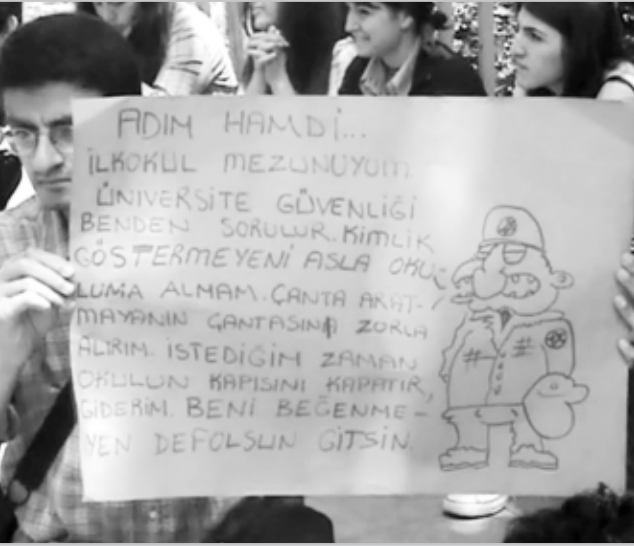 ADIM HAMDİ...
İLKOKUL MEZUNUYUM.
ÜNİVERSİTE GÜVENLİĞİ
BENDEN SORULUR. KİMLİK
GÖSTERMEYENİ ASLA OKU-
LUMA ALMAM. ÇANTA ARAT-
MAYANIN ÇANTASINI ZORLA
ALIRIM. İSTEDİĞİM ZAMAN
OKULUN KAPISINI KAPATIR,
GİDERİM. BENİ BEĞENME-
YEN DEFOLSUN GİTSİN.